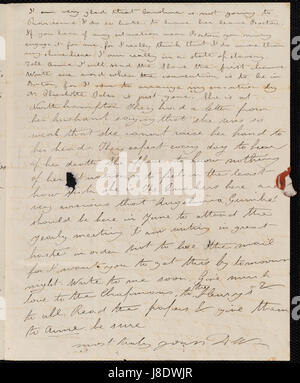 I am very glad that Caroline is not going to
Providence I do so hate to have her leave Boston
If you hear of any situation near Boston you may
engage it for me, for I really think that I do more than
my share here I am really in a state of slavery
Tell Anne I will send the the first chance
Write me word when the convention is to be in
Boston, for I want to arrange my vacation by
it Theodore Gales is not yet She is at
Northampton they had a letter from
her husband saying that she was so
weak that she cannot raise her hand to
her head. They expect every day to hear
of her death. to know nothing
of her in the least
how here are
very anxious that Angelina Grimké
should be here in June to attend the
yearly meeting I am writing in great
haste in order not to lose the mail
for I want you to get this by tomorrow
night Write to me soon Give much
love to the Chapmans, the Henry's &
to all Read the papers & give them
to Anne be sure
most truly yours
alamy
Image ID: J8DWJR
www.alamy.com